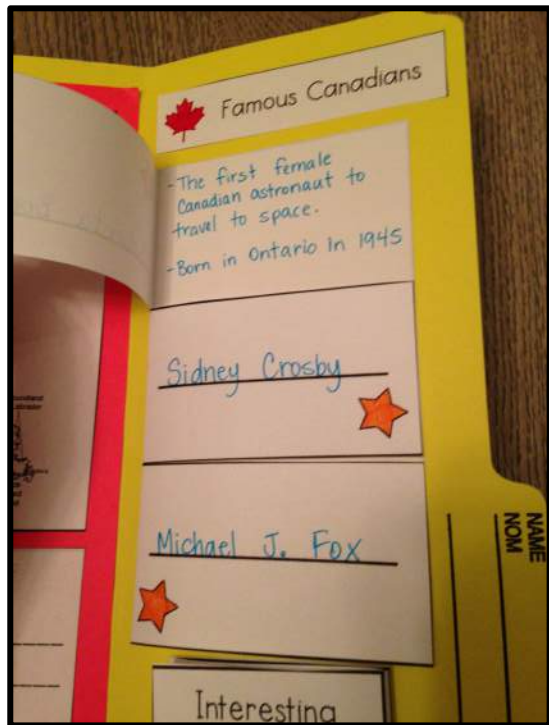 Famous Canadians
-The first female
Canadian astronaut to
travel to space.
-Born in Ontario in 1945
Sidney Crosby
Michael J. Fox
Interesting
NAME
NOM